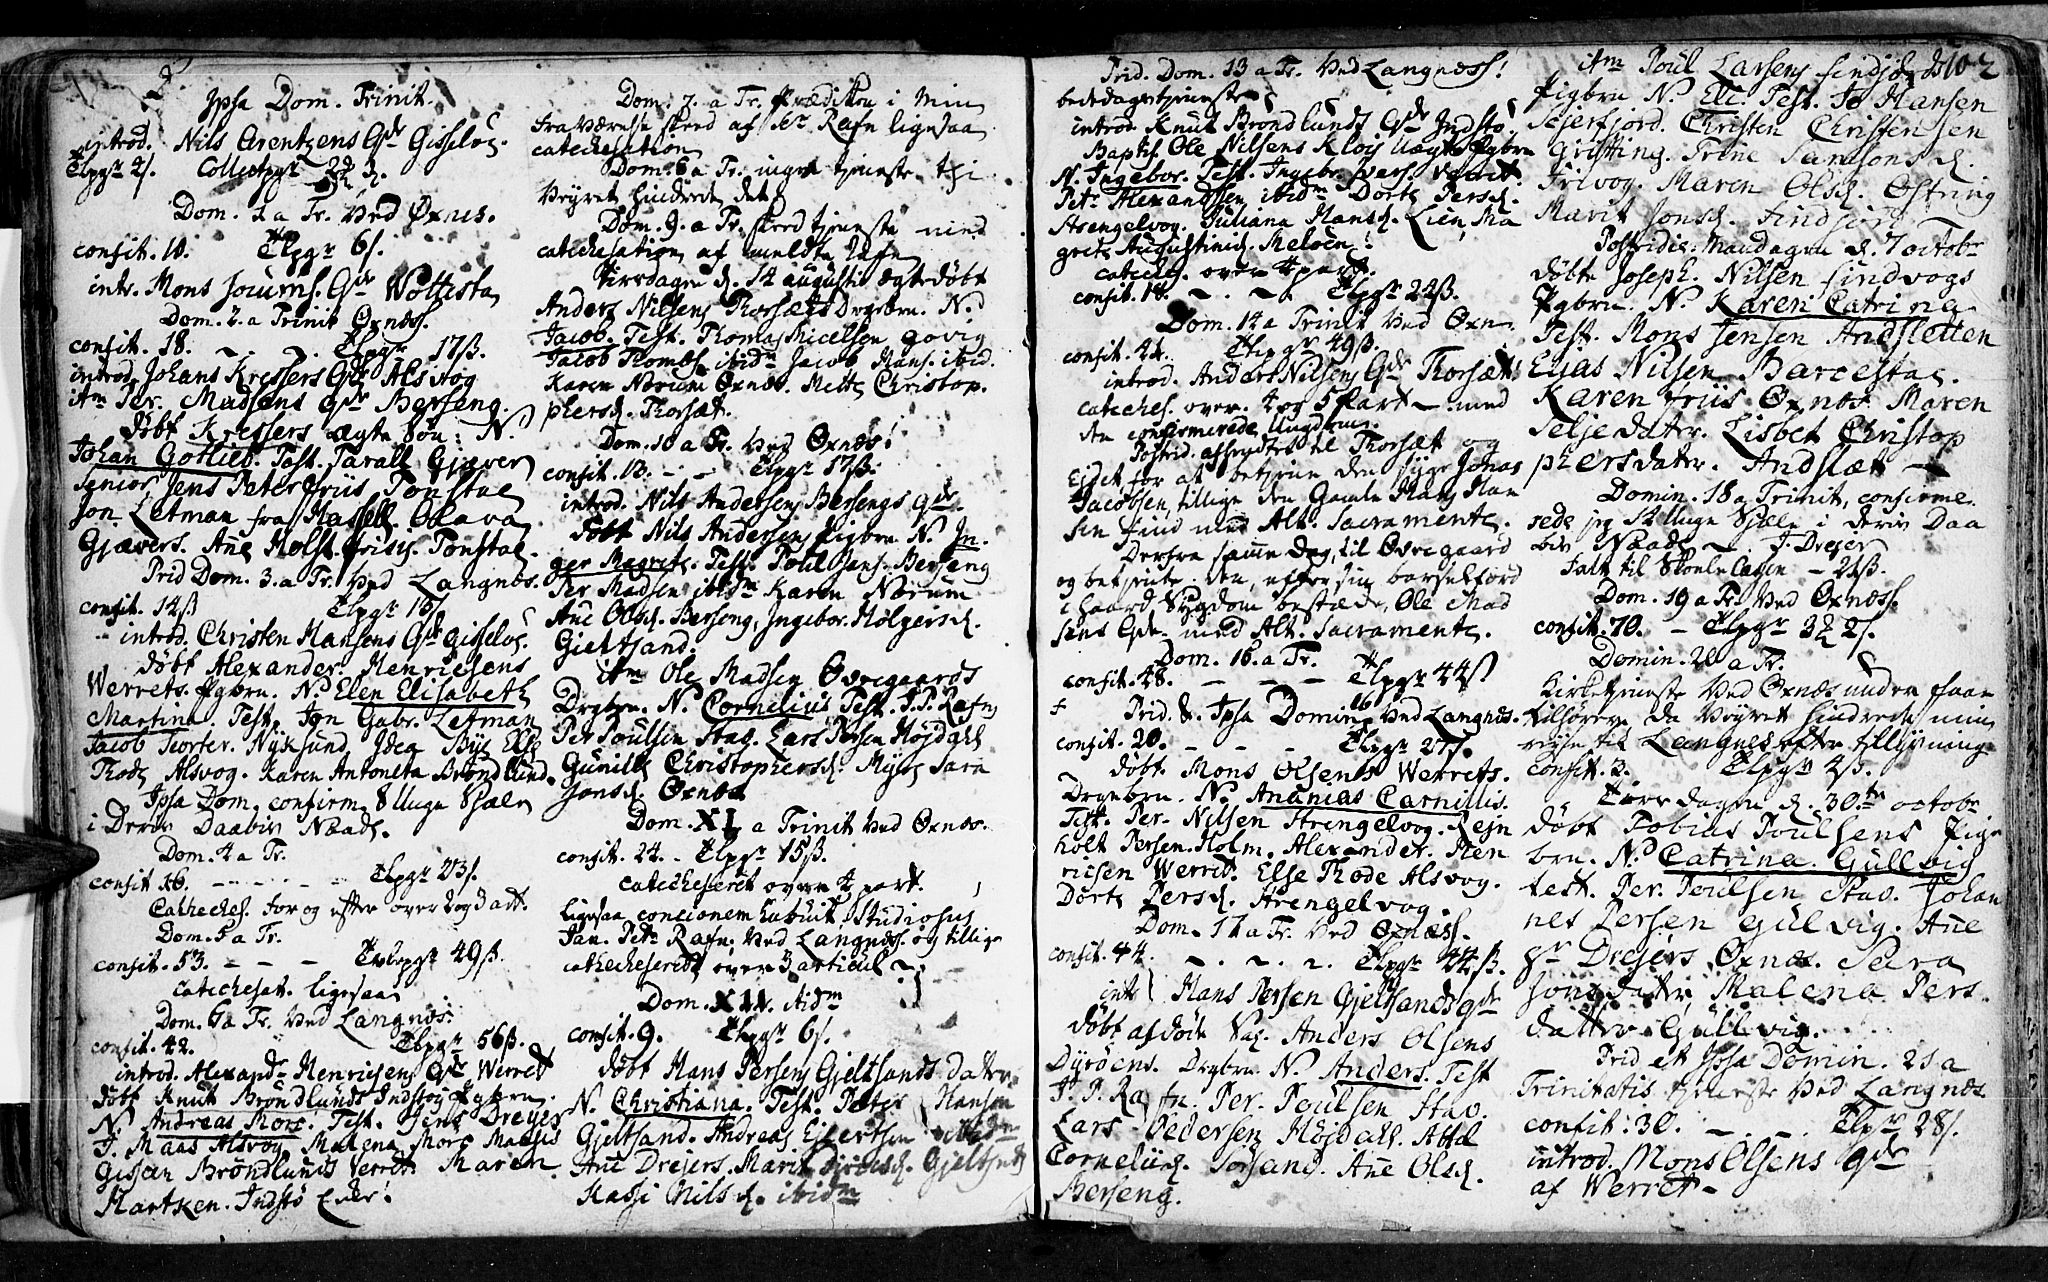 Ipsa Dom. Trinit.
introd. Nils Arentzens Qde Gisseløe.
Tlpgr 4s. Collectpgr
Dom. 1 a Tr. Ved Øxnes.
confit. 10. Tlpgr 6s.
intr. Mons Jocums. Qde Wottesta
Dom. 2. a Trinit Øxnæs.
confit. 18. Tlpgr 17ß.
introd. Johans Kressers Qde Alsvog
itm Per. Madsens qde Berseng.
døbt Kressers ægte Søn: N.
Johan Gotlieb. Test. Taralt Gjæver
Senior Jens Peter Friis Tonstae
Jon Letman fra Hassell. Olava
Gjævers. Ane Holst. Friis. Tonstae.
Prid Dom. 3. a Tr. Ved Langnes.
confit. 14ß Tlpgr 16ß
introd. Christen Hansens Qde Gisseløe.
døbt Alexander Henricsens
Werrets. Pgbrn. N. Elen Elisabeth
Martina. Test. Jon Gabr. Letman
Jacob Teorter. Nyksund, Idea Bye Else
Thode Alsvog. Karen Antoneta Brøndlund.
Ipsa Dom. confirm. 8 Unge Siæle
i Deris Daabes Naade.
Dom. 4 a Tr.
confit 16. Tlpgr 23s.
Cathechef. for og efter over
Dom. 5 a Tr.
confit. 53. Tvlpgr 49ß.
catechesat. ligesaa
Dom. 6 a Tr. Ved Langnæs.
confit. 42. Tlpgr 56ß.
introd. Alexandr Henricsens Qde Werret
døbt Knut Brøndlunds Indstøe Pgbrn.
N. Andreas Mons. Test. Jens Dreyer
J. Maas Alsvog, Malena Mors Maasis
Brøndlunds Verret Maren
Hartken. Indstø
Dom. 7. a Tr. Prædiken i min
fraværelse skeed af Hr Rafn ligesaa
catechesation
Dom. 8 a Tr. ingen tjeneste thi
Veyret hindrede det
Dom. 9. a Tr. skeed tjeneste med
catechesation af meldte Rafn
Tirsdagen d. 14 augusti ægte døbt
Anders Nilsens Thorsæts Drgbrn. N.
Jacob. Test. Thomas Micelsen govig
Jacob Thomæs. ibidm Jacob Hans. ibid.
Karen Norum Øxnæs. Mette Christop.
phersd. Thorsæt.
Dom. 10 a Tr. Ved Øxnæs!
confit. 13. Tlpgr 17ß.
introd. Nils Andersens Bersengs qde
døbt Nils Andersens Pigbrn N. In.
ger Magrete. Test. Poul Jens. Berseng
Per Madsen ibidm Karen Norum
Ane Olsd. Berseng, Ingebor. Holgersd.
Gieltsand.
itm Ole Madsen Øvregaards
Drgbrn. N. Cornelius Test. J. P. Rafn
Per Poulsen Stav. Lars Persen Højdahl
Gunille Christophersd. Myre Sara
Jonsd. Øxnæs
Dom. XI a Trinit Ved Øxnæs.
confit. 24. Tlpgr 15ß.
catecheseret over 4 part.
ligesaa concionem habuit Studiosus
Jan. Petr Rafn. Ved Langnæs og tillige
cathecheserede over 3 articul
Dom. XII. itidm
confit. 9. Tlpgr 6s.
døbt Hans Persens Gjeltsands datter
N. Christiana. Test. Peter Hansen
Gjeltsand. Andreas Ejlertsen ibidm
Ane Drejers. Marit Gjeltsand
Kassi Nilsd. ibidm
Prid. Dom. 13 a Tr. Ved Langnæss!
bededagstjeneste
introd. Knut Brøndlunds Qde Indstø.
Baptis. Ole Nilsens Klois Uægte Pgbrn
N. Ingebor. Test. Ingebr. Pers.
Petr Alexandsen ibidm Dorte Persd.
Strengelvog. Juliana Hansd. Lien, Ma
grete Augustined. Meløen!
cateches. over 4 part.
confit. 18. Tlpgr 24ß.
Dom. 14 a Trinit Ved Øxn.
confit. 44. Tlpgr 49ß.
introd. Anders Nilsens Qde Thorsæt!
cateches. over. 4 og 5 Part med
den confirmerede Ungdom.
Postrid. affrydtes til Thorsæt og
Eidet, for at betjene den syge Jonas
Jacobsen, tillige den Gamle Hans Han
sen Find med Alt. Sacramente.
Derfra samme dag, til Øvregaard
og betjente den, efter sin barselfærd
i haard Sygdom bestædde, Ole Mad
sens Qde med Alt. Sacramente.
Dom. 16. a Tr.
confit. 48. Tlpgr 44ß
Prid. & Ipsa Domin. 16 Ved Langnæs.
confit. 20. Tlpgr 27s.
døbt. Mons Olsens Werrets.
Drgbrn. N. Ananias Carnillis.
Test. Per. Nilsen Strengelvog. Rejn
holt Persen. Holm. Alexander. Hen
ricsen Werret. Else Thode Alsvog.
Dorte Persd. Strengelvog.
Dom. 17 a Tr. Ved Øxnæs.
confit. 44. Tlpgr 44ß.
int Hans Persen Gjeltsands qde
døbt afdøde Anders Olsens
Dyrøens. Drgbrn N. Anders. Test
J. P. Rafn. Per. Poulsen Stav.
Lars Pedersen Højdall. Attal
Corneliid. Sorsand. Ane Olsd.
Berseng.
itm Poul Larsens findfjords 102
Pigbrn N. Eli. Test. Jo Hansen
Sejerfjord. Christen Christensen
Gristting. Trine Samsonsd.
Trivog. Maren Olsd. Østring
Marit Jonsd. findfiord
Postridie: Mandagen d. 7 octobr
døbte Joseph. Nilsen findvogs
Pgbrn. N. Kareni Catrina
Test. Mons Jensen Andsletten
Elias Nilsen Barcestae.
Karen Friis Øxnæs Maren
Seljedatr. Lisbet Christop
phersdatr. Andslæt
Domin. 18 a Trinit, confirme
rede jeg 14 Unge Siæle i deris Daa
bes Naade J. Dreyer
Talt til Skole Cassen 24ß.
Dom. 19 a Tr. Ved Øxnæss.
confit. 70. Tlpgr
Domin. 20 a Tr.
Kirketjeneste Ved Øxnæs under
tilhørere da Veyret hindrede min
reyse til Langnes efter tillysning
confit. 3. Tlpgr 4ß.
Tirsdagen d. 30te octobr
døbt Tobias Poulsens Pige
brn. N. Catrina Gullvig
test. Per. Poulsen Stav. Johan
nes Persen Gulvig. Ane
Drejers Øxnæs. Sara
Jonsdatr, Malena Pers.
datter Gullvig.
Prid et Ipsa Domin. 21 a
Trinitatis tjeneste Ved Langnæs
confit: 30. Tlpgr 28s.
introd. Mons Olsens qde
af Werret